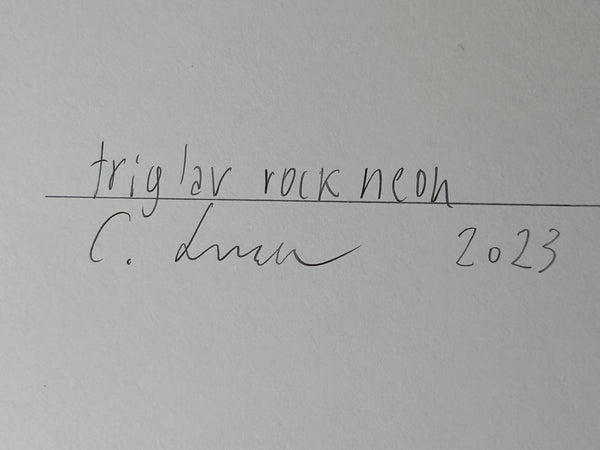 triglav rock neon
C. 2023